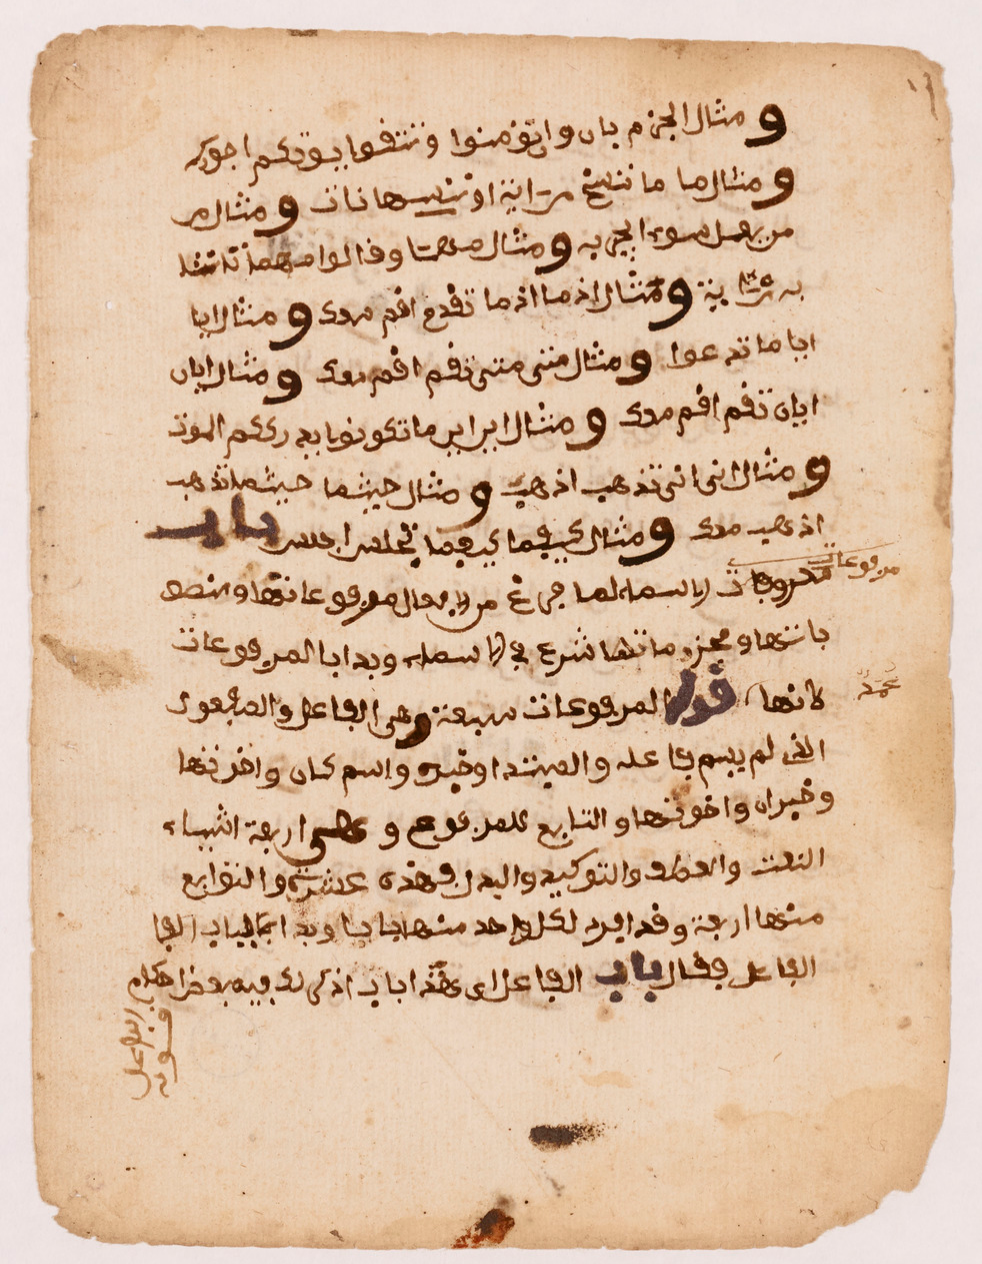 ومثال الجزم بان وان تؤمنوا وتتقوا يوتكم اجوركم
ومثال ما ما ننسخ من اية او ننسها نات ومثال من
من يعمل سوءا يجز به ومثال مهما وقالوا مهما تاتنا
به من اية ومثال اذما اذ ما تقدم اقم معك ومثال ايا
ايا ما تدعوا ومثال متى متى تقم اقم معك ومثال ايان
ايان تقم اقم معك ومثال اين اين ما تكونوا يدرككم الموت
ومثال انى انى تذهب اذهب ومثال حيثما حيثما تذهب
اذهب معك ومثال كيفما كيفما تجلس اجلس باب
مرفوعات
الاسماء لما فرغ من الافعال مرفوعاتها ومنصو
باتها ومجزوماتها شرع في الاسماء وبدا بالمرفوعات
لانها قوله المرفوعات سبعة وهي الفاعل والمفعول
الذي لم يسم فاعله والمبتدا وخبره واسم كان واخواتها
وخبر ان واخوتها والتابع للمرفوع وهي اربعة اشياء
النعت والعطف والتوكيد والبدل فهذه عشرة والتوابع
منها اربعة وقد افرد لكل واحد منها بابا وبدا بباب الفا
الفاعل فقال باب الفاعل اي هذا باب اذكر لك فيه بعض احكام
الفاعل
قوله